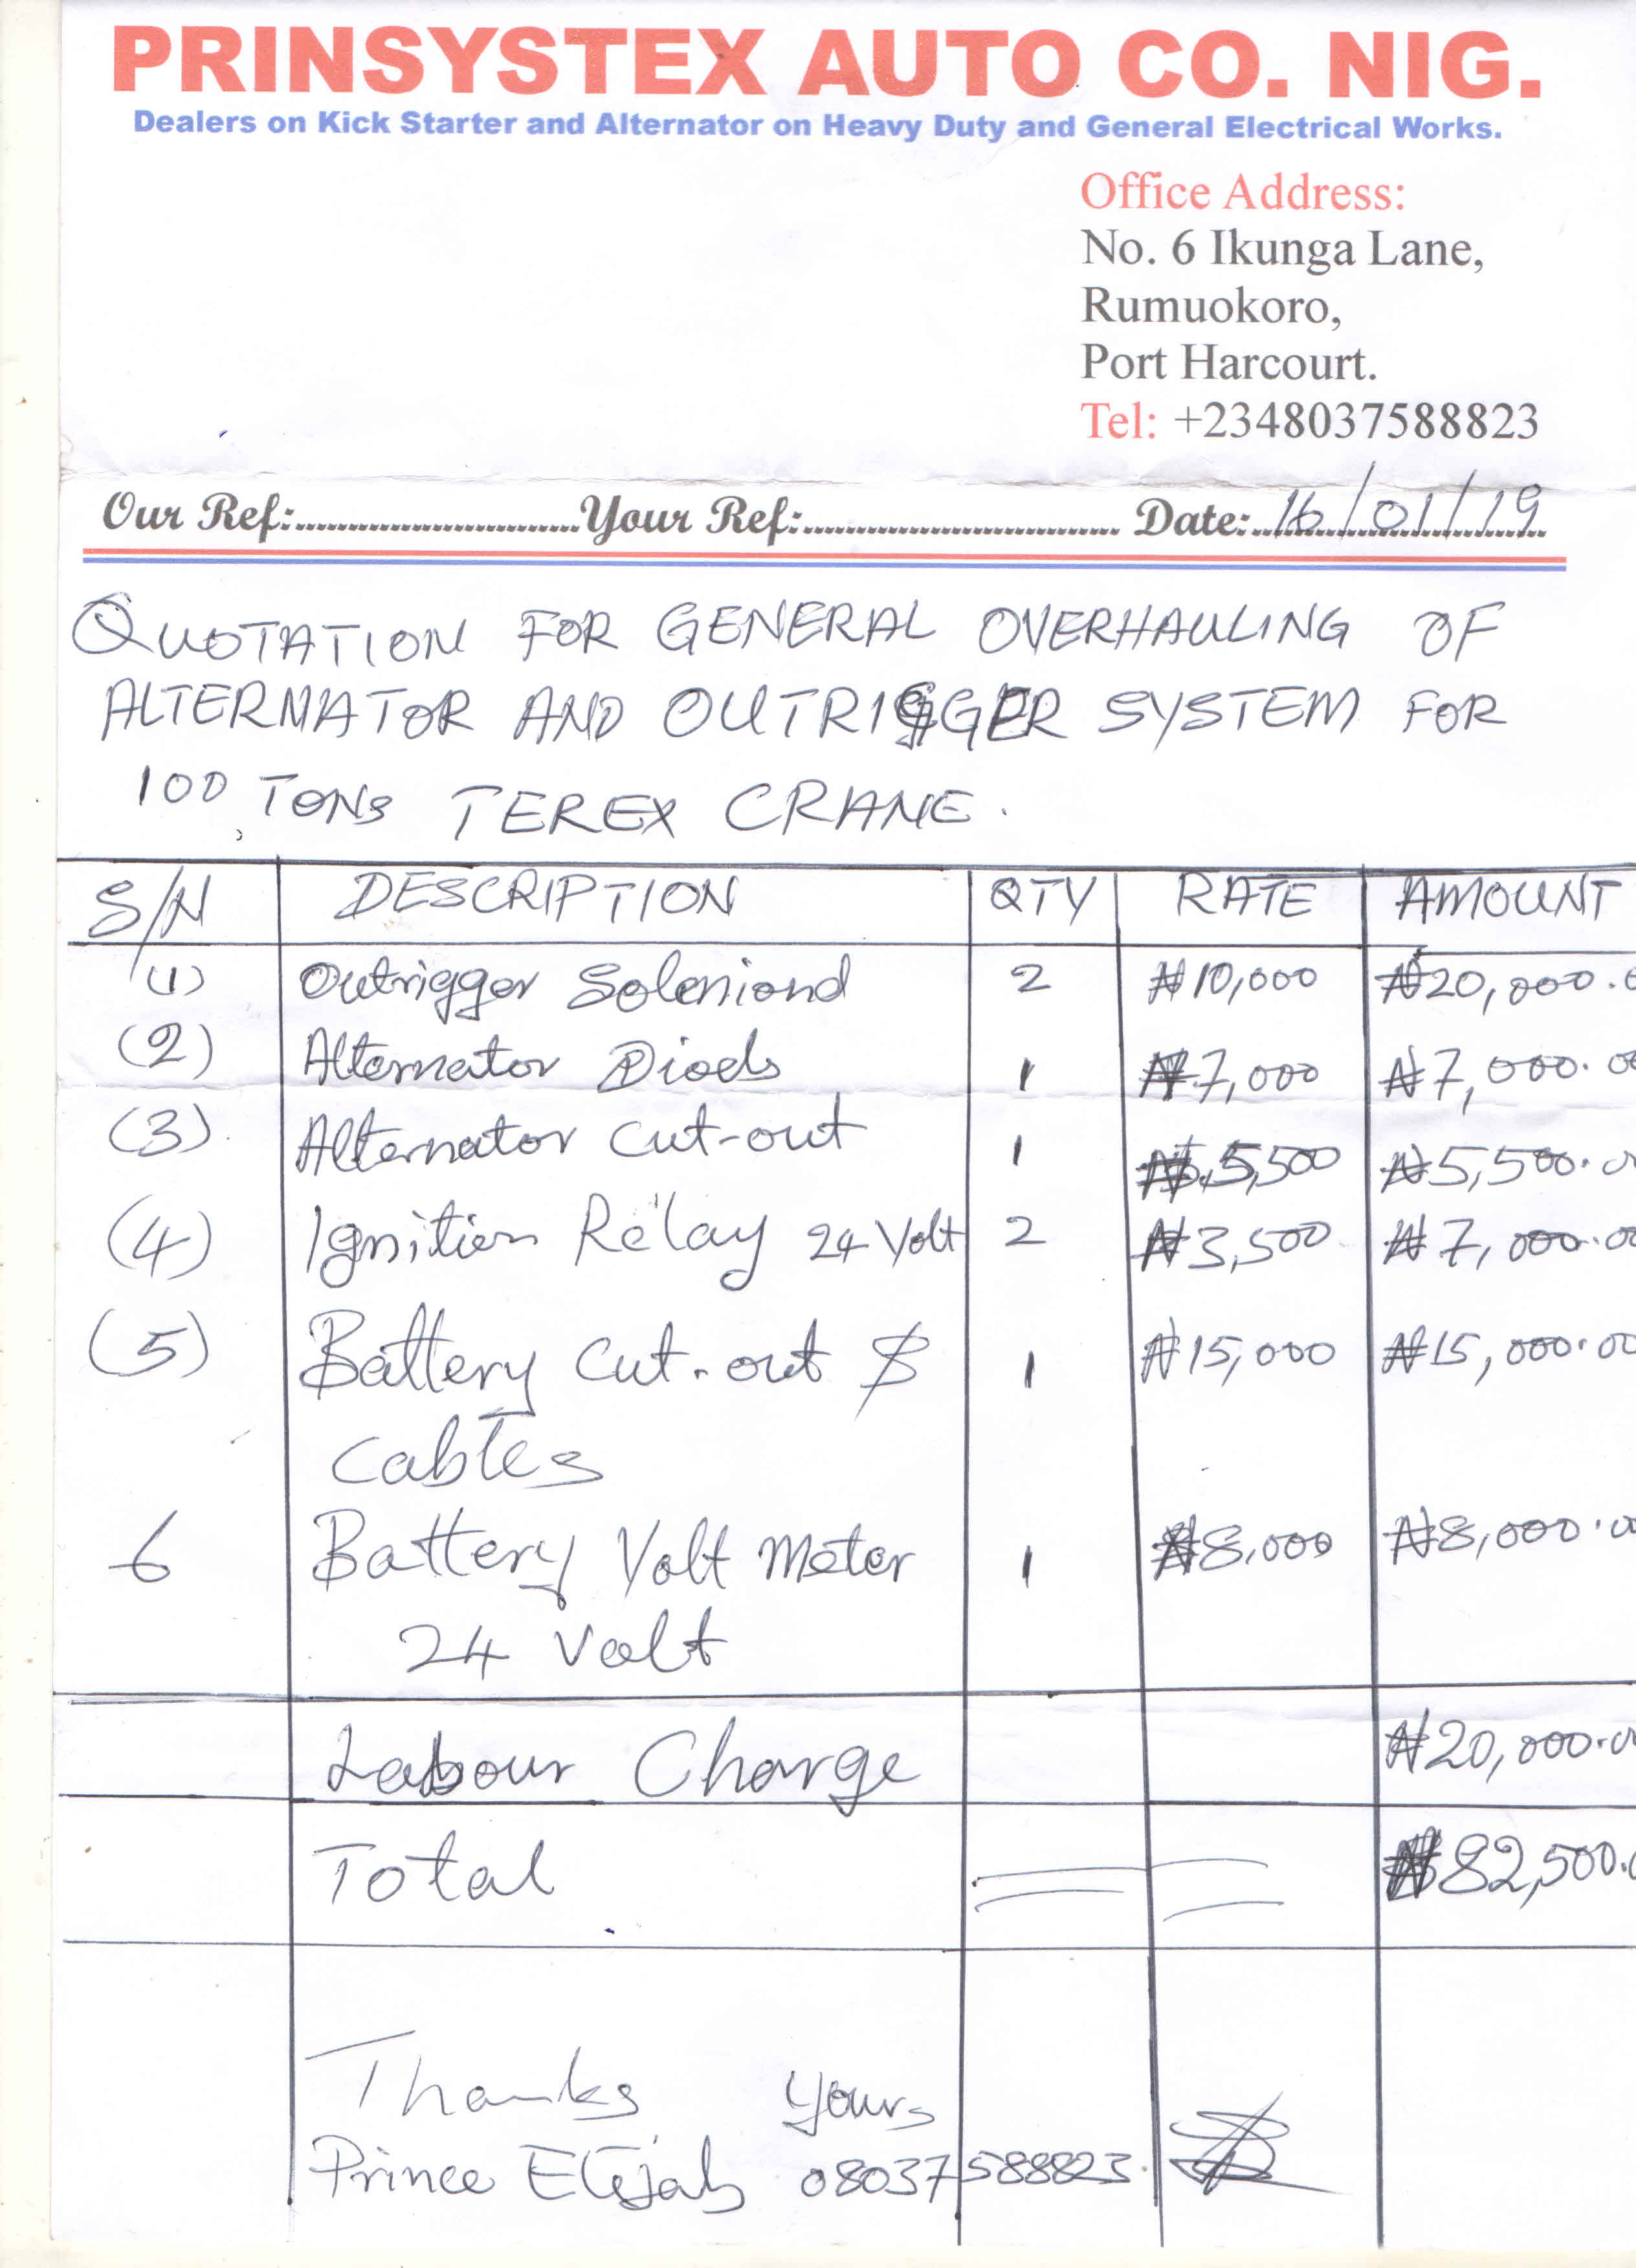 PRINSYSTEX AUTO CO. NIG.
Dealers on Kick Starter and Alternator on Heavy Duty and General Electrical Works.
Office Address:
No. 6 Ikunga Lane,
Rumuokoro,
Port Harcourt.
Tel: +2348037588823
Our Ref:..............................Your Ref:.................................. Date: 16/01/19
QUOTATION FOR GENERAL OVERHAULING OF
ALTERNATOR AND OUTRIGGER SYSTEM FOR
100 TONS TEREX CRANE.
S/N DESCRIPTION QTY RATE AMOUNT
(1) Outrigger Soleniond 2 ₦10,000 ₦20,000.0
(2) Alternator Diods 1 ₦7,000 ₦7,000.00
(3) Alternator cut-out 1 ₦5,500 ₦5,500.00
(4) Ignition Relay 24 Volt 2 ₦3,500 ₦7,000.00
(5) Battery cut-out $ 1 ₦15,000 ₦15,000.00
cables
6 Battery Volt Meter 1 ₦8,000 ₦8,000.00
24 Volt
Labour Charge ₦20,000.00
Total ₦82,500.0
Thanks Yours
Prince Elijah 08037588823